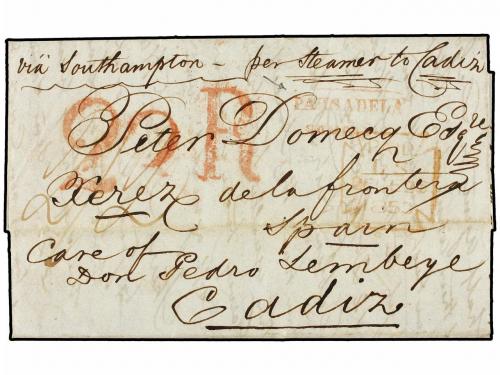 via Southampton - per Steamer to Cadiz
22 R
PA ISABELA
Peter Domecq Esqre
Xerez de la frontera
Spain
Care of
Don Pedro Lembeye
Cadiz